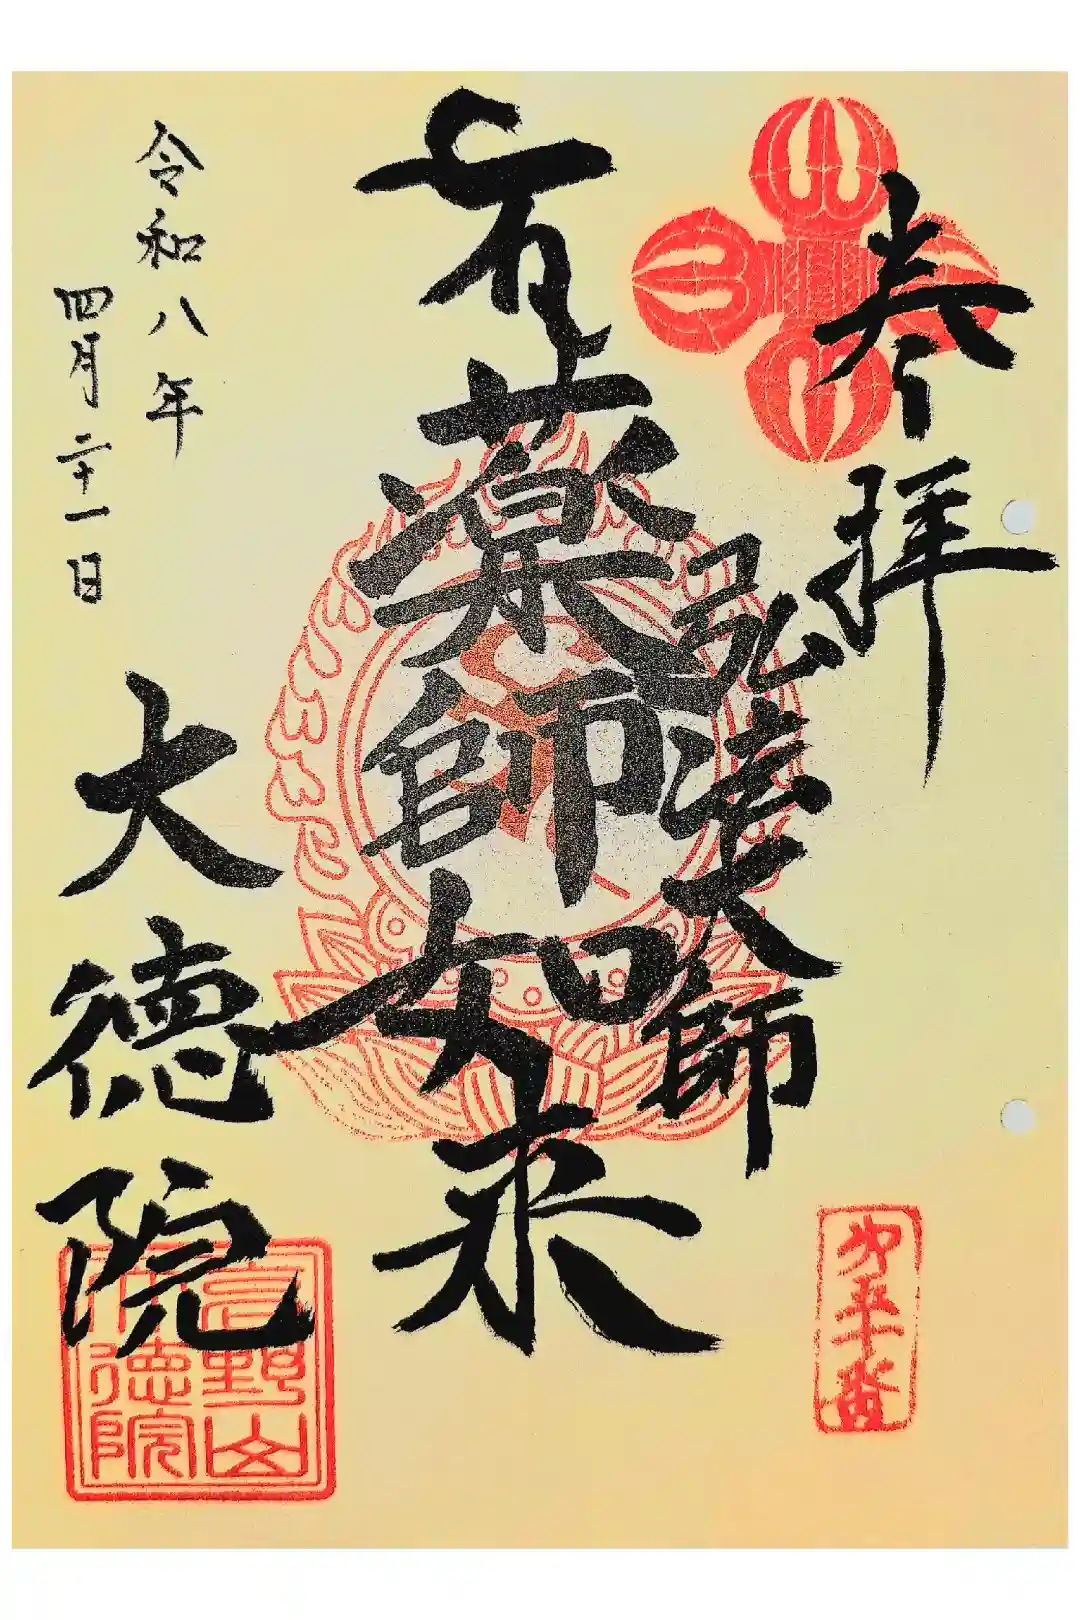 奉拝
弘法大師
薬師如来
令和八年
四月二十一日
大徳院
第五十番
高野山
大徳院